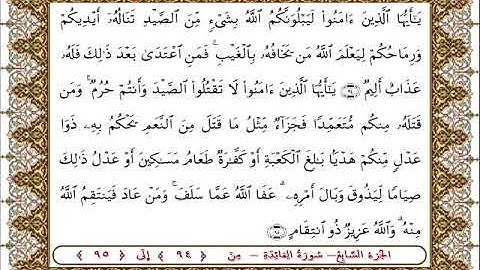 يَٰٓأَيُّهَا ٱلَّذِينَ ءَامَنُوا۟ لَيَبْلُوَنَّكُمُ ٱللَّهُ بِشَىْءٍ مِّنَ ٱلصَّيْدِ تَنَالُهُۥٓ أَيْدِيكُمْ
وَرِمَاحُكُمْ لِيَعْلَمَ ٱللَّهُ مَن يَخَافُهُۥ بِٱلْغَيْبِ ۚ فَمَنِ ٱعْتَدَىٰ بَعْدَ ذَٰلِكَ فَلَهُۥ
عَذَابٌ أَلِيمٌ ﴿٩٤﴾ يَٰٓأَيُّهَا ٱلَّذِينَ ءَامَنُوا۟ لَا تَقْتُلُوا۟ ٱلصَّيْدَ وَأَنتُمْ حُرُمٌ ۚ وَمَن
قَتَلَهُۥ مِنكُم مُّتَعَمِّدًا فَجَزَآءٌ مِّثْلُ مَا قَتَلَ مِنَ ٱلنَّعَمِ يَحْكُمُ بِهِۦ ذَوَا
عَدْلٍ مِّنكُمْ هَدْيًۢا بَٰلِغَ ٱلْكَعْبَةِ أَوْ كَفَّٰرَةٌ طَعَامُ مَسَٰكِينَ أَوْ عَدْلُ ذَٰلِكَ
صِيَامًا لِّيَذُوقَ وَبَالَ أَمْرِهِۦ ۗ عَفَا ٱللَّهُ عَمَّا سَلَفَ ۚ وَمَنْ عَادَ فَيَنتَقِمُ ٱللَّهُ
مِنْهُ ۗ وَٱللَّهُ عَزِيزٌ ذُو ٱنتِقَامٍ ﴿٩٥﴾
الجزء السابع - سورة المائدة - من ﴿ ٩٤ ﴾ إلى ﴿ ٩٥ ﴾